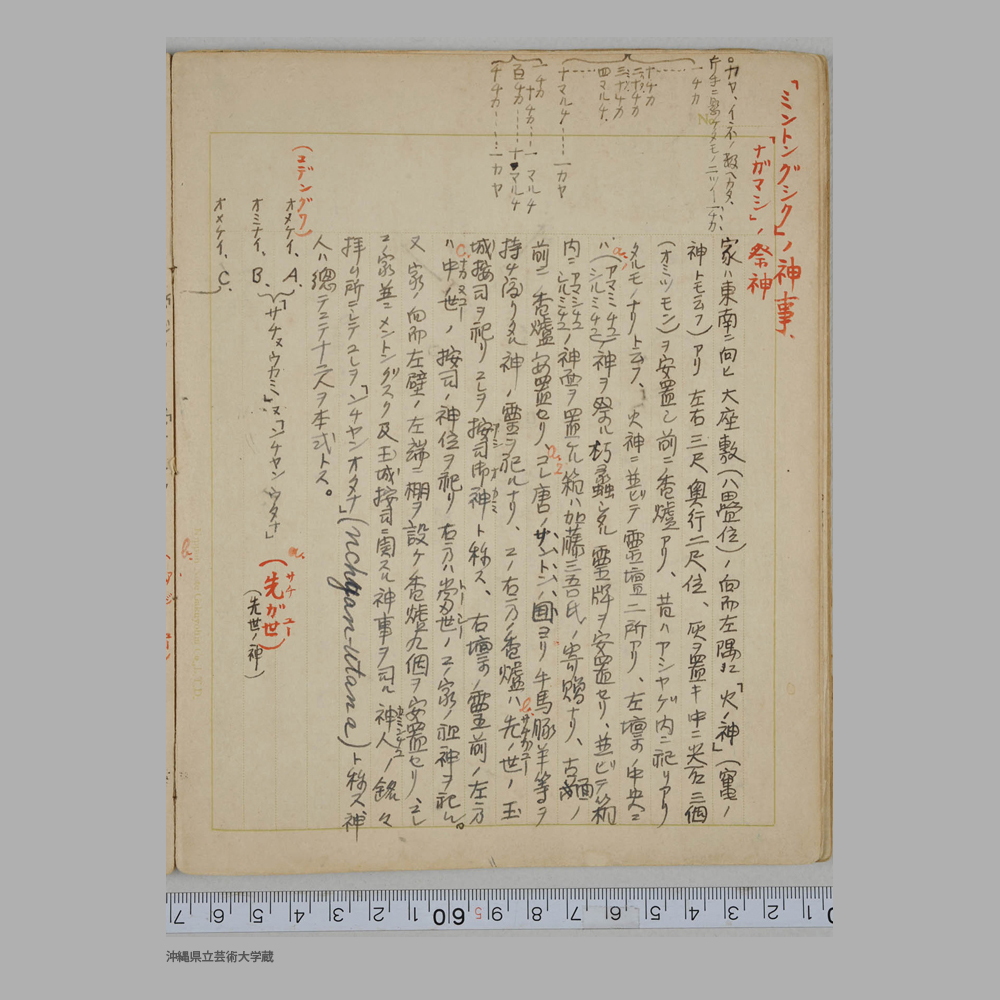 「ミントングシク」ノ神事、
「ナガマシ」ノ祭神
家ハ東南ニ向ヒ大座敷(八畳位)ノ向而左隅ニ「火ノ神」(竃ノ
神トモ云フ)アリ 左右三尺奥行二尺位、灰ヲ置キ中ニ尖石三個
(オミツモン)ヲ安置シ前ニ香爐アリ、昔ハアシヤゲ内ニ祀リアリ
タルモノナリト云フ、火神ニ並ビテ霊壇二所アリ、左壇ノ中央ニ
ハ(アマミキユ シルミキユ)神ヲ祭ル朽蟲シタル霊牌ヲ安置セリ、並ビテ箱
内ニアマミキユ シルミキユノ神面ヲ置ケル箱ハ加藤三吾氏ノ寄贈ナリ、古面ノ
前ニ香爐安置セリ、コレ唐ノサントン国ヨリ牛馬豚羊等ヲ
持チ渡リタル神ノ霊ヲ祀ルナリ、コノ右方ノ香爐ハ先ノ世ノ玉
城按司ヲ祀リコレヲ按司御神ト称ス、右壇ノ霊前ノ左方
ハ中ノ世ノ按司ノ神位ヲ祀リ右方ハ当世ノコノ家ノ祖神ヲ祀ル。
又家ノ向而左壁ノ左端ニ棚ヲ設ケ香爐九個ヲ安置セリ、コレ
コノ家並ニメントングスク及玉城按司ニ関スル神事ヲ司ル神人ノ銘々
拝ム所ニシテコレヲ「ンチヤンオタナ」(nchyan-utana)ト称ス神
人ハ總テニテ十二人ヲ本式トス。
(エデングワ)
オメケイ、A.
オミナイ、B.
オメケイ、C.
「サチヌウカミ」又「ンチヤンウタナ」
a. サキ ユー
(先ガ世)
(先世ノ神)
一チカ
十チカ
二十チカ
三十チカ
四マルチ、
十マルチ……一カヤ
一チカ
十チカ……一マルチ
百チカ……十マルチ
千チカ……一カヤ
沖縄県立芸術大学蔵